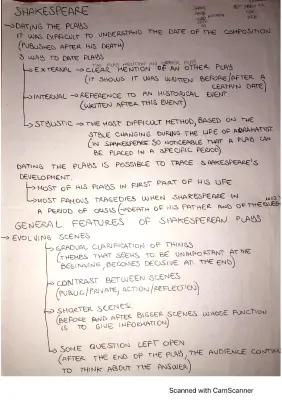 SHAKESPEARE
DATING THE PLAYS
IT WAS DIFFICULT TO UNDERSTAND THE DATE OF THE COMPOSITION
(PUBLISHED AFTER HIS DEATH)
3 WAYS TO DATE PLAYS
EXTERNAL → CLEAR MENTION OF AN OTHER PLAY
(IT SHOWS IT WAS WRITTEN BEFORE/AFTER A
CERTAIN DATE)
INTERNAL → REFERENCE TO AN HISTORICAL EVENT
(WRITTEN AFTER THIS EVENT)
STYLISTIC → THE MOST DIFFICULT METHOD, BASED ON THE
STYLE CHANGING DURING THE LIFE OF A DRAMATIST
(IN SHAKESPEARE SO NOTICEABLE THAT A PLAY CAN
BE PLACED IN A SPECIFIC PERIOD)
DATING THE PLAYS IS POSSIBLE TO TRACE SHAKESPEARE'S
DEVELOPMENT.
MOST OF HIS PLAYS IN FIRST PART OF HIS LIFE
MOST FAMOUS TRAGEDIES WHEN SHAKESPEARE IN
A PERIOD OF CRISIS (→DEATH OF HIS FATHER AND OF THE QUEEN
GENERAL FEATURES OF SHAKESPEREAN PLAYS
EVOLVING SCENES
GRADUAL CLARIFICATION OF THINGS
(THEMES THAT SEEMS TO BE UNIMPORTANT AT THE
BEGINNING, BECOMES DECISIVE AT THE END)
CONTRAST BETWEEN SCENES
(PUBLIC/PRIVATE, ACTION/REFLECTION)
SHORTER SCENES
(BEFORE AND AFTER BIGGER SCENES WHOSE FUNCTION
IS TO GIVE INFORMATION)
SOME QUESTION LEFT OPEN
(AFTER THE END OF THE PLAYS, THE AUDIENCE CONTINUE
TO THINK ABOUT THE ANSWER)
Scanned with CamScanner